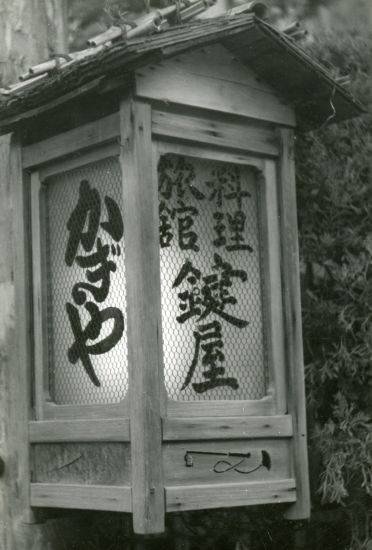 料理
旅館
鍵屋
かぎや